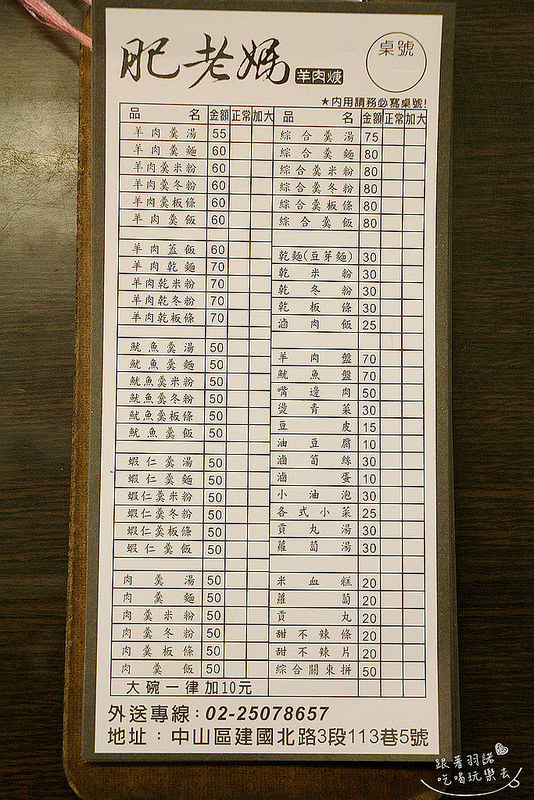 肥老媽 羊肉焿
桌號
★內用請務必寫桌號!
品名 金額 正常 加大
羊肉羹湯 55
羊肉羹麵 60
羊肉羹米粉 60
羊肉羹冬粉 60
羊肉羹板條 60
羊肉羹飯 60
羊肉蓋飯 60
羊肉乾麵 70
羊肉乾米粉 70
羊肉乾冬粉 70
羊肉乾板條 70
魷魚羹湯 50
魷魚羹麵 50
魷魚羹米粉 50
魷魚羹冬粉 50
魷魚羹板條 50
魷魚羹飯 50
蝦仁羹湯 50
蝦仁羹麵 50
蝦仁羹米粉 50
蝦仁羹冬粉 50
蝦仁羹板條 50
蝦仁羹飯 50
肉羹湯 50
肉羹麵 50
肉羹米粉 50
肉羹冬粉 50
肉羹板條 50
肉羹飯 50
大碗一律加10元
品名 金額 正常 加大
綜合羹湯 75
綜合羹麵 80
綜合羹米粉 80
綜合羹冬粉 80
綜合羹板條 80
綜合羹飯 80
乾麵(豆芽麵) 30
乾米粉 30
乾冬粉 30
乾板條 30
滷肉飯 25
羊肉盤 70
魷魚盤 70
嘴邊肉 50
燙青菜 30
豆皮 15
油豆腐 10
滷筍絲 30
滷蛋 10
小油泡 30
各式小菜 25
貢丸湯 30
蘿蔔湯 30
米血糕 20
蘿蔔 20
貢丸 20
甜不辣條 20
甜不辣片 20
綜合關東拼 50
外送專線:02-25078657
地址:中山區建國北路3段113巷5號
跟著羽諾
吃喝玩樂去